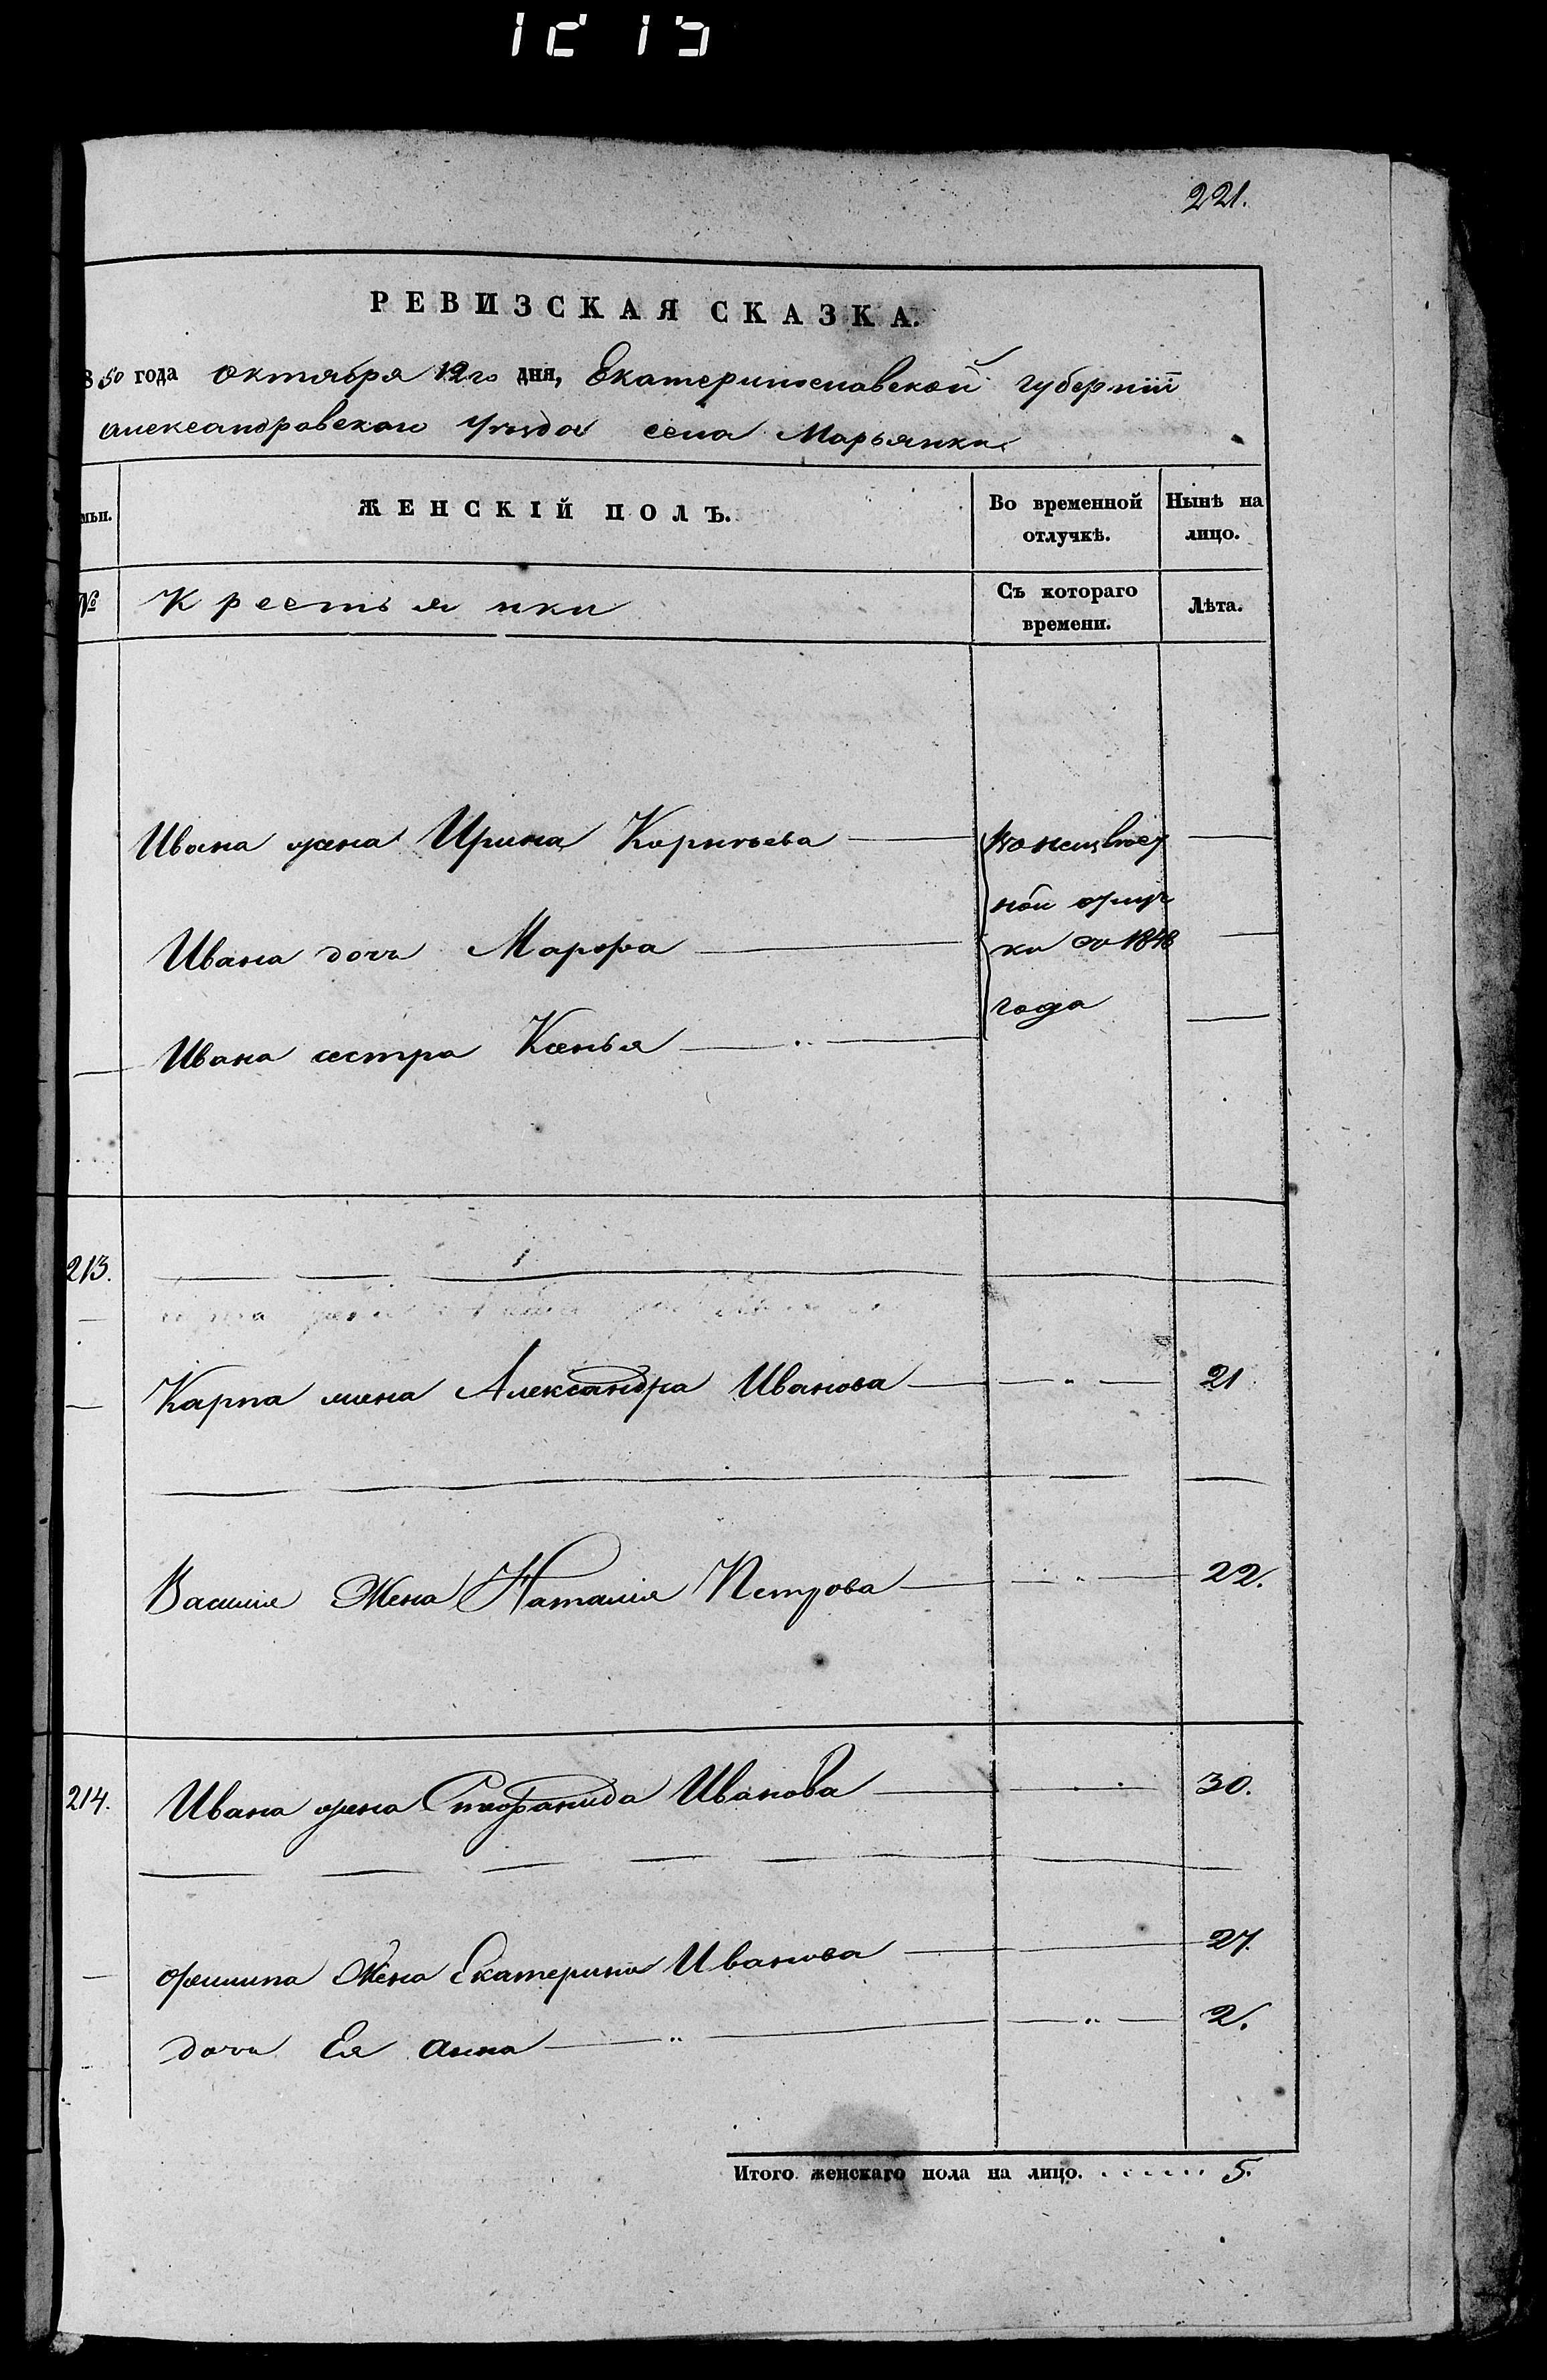 221.
РЕВИЗСКАЯ СКАЗКА.
850 года октября 12го дня, Екатеринославской губернїи
александровскаго Уѣзда села Марьянки
мьи. ЖЕНСКІЙ ПОЛЪ. Во временной отлучкѣ. Нынѣ на лицо.
№ Крестьянки Съ котораго времени. Лѣта.
Ивана жена Ирина Корнѣева
Ивана дочь Марфа
ки 1848
года
Ивана сестра Ксенья
213.
Карпа жена Александра Иванова 21
Василия Жена Наталия Петрова 22.
214. Ивана жена Стефанида Иванова 30.
Филипа Жена Екатерина Иванова 27.
дочь Ея анна 2.
Итого женскаго пола на лицо. 5.